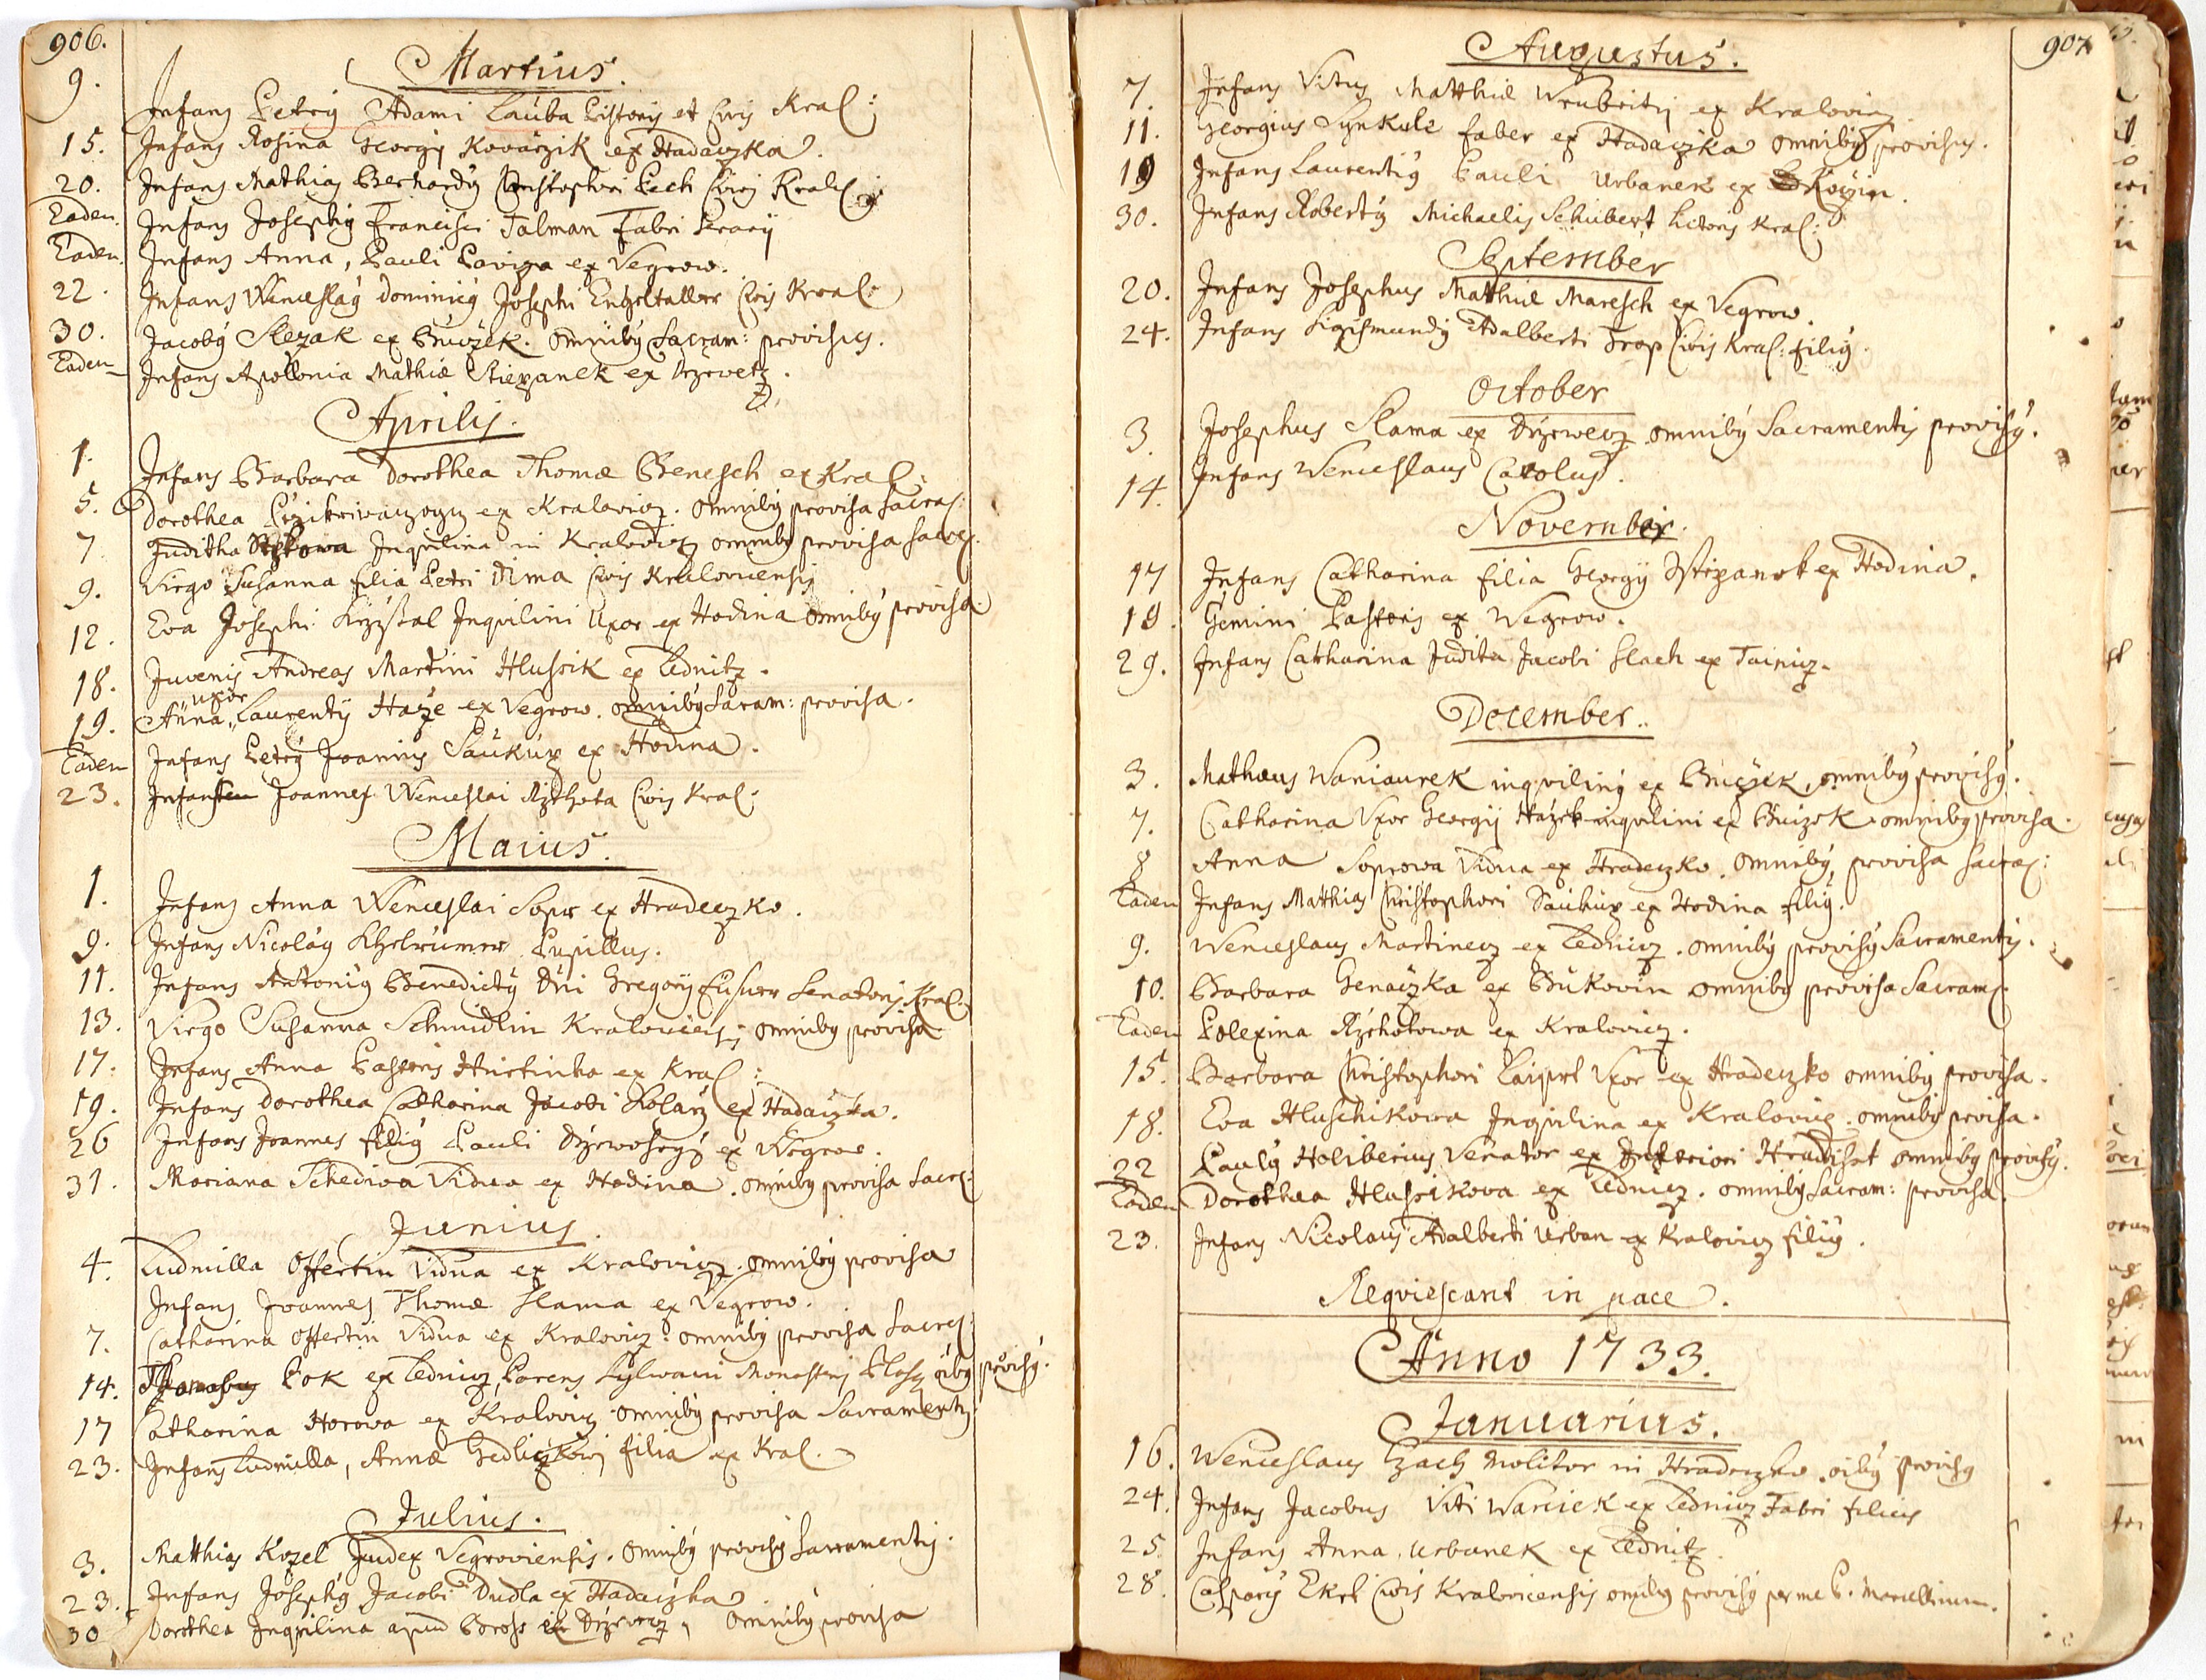 906.
Martius.
9. Infans Petrus Adami Lauba Pistoris et Civis Kral:
15. Infans Rosina Georgij Kovarzik ex Hadaczka.
20. Infans Mathias Bernardy Christophori Pech Civis Kral:
Eaden. Infans Josephy Francisci Talman Fabri
Eaden. Infans Anna, Pauli ex Vegrow.
22. Infans Wenceslaý Dominicý Josephi Engeltaller Civis Kral:
30. Jacobý Slezak ex Buczek. Omnibý Sacram: provisus.
Eaden Infans Apollonia Mathiæ Stiepanek ex Drzewetz.
Aprilis.
1. Infans Barbara Dorothea Thomæ Benesch ex Kral:
5. Dorothea ex Kralovicz. omnibý provisa Sacra:
7 Juditha Inquilina in Kralovicz omnibý provisa Sacra:
9. Virgo Susanna filia Petri Civis Kralovicensis
12. Eva Josephi Inquilini Uxor ex Hodina omnibý provisa.
18. Juvenis Andreas Martini Hlussik ex Lednitz.
uxor
19. Anna, Laurentij Haze ex Vegrow. omnibý Sacram: provisa.
Eaden Infans Petrý Joannis Saukúp ex Hodina.
23. Infans Joannes Wenceslai Rzihota Civis Kral:
Maius.
1. Infans Anna Wenceslai Sopr ex Hradeczko.
9. Infans Nicoláý Pupillus.
11. Infans Antoniý Benedictý Dni Gregorij Senatoris Kral:
13. Virgo Susanna Schmidlin Kralovicens: omnibý provisa
17. Infans Anna Pastoris ex Kral:
19. Infans Dorothea Catharina Jacobi Kolarz ex Hadaczka.
26 Infans Joannes filiý Pauli ex Wegrow.
31. Mariana Schediva Vidua ex Hodina. omnibý provisa Sacra:
Junius.
4. Ludmilla Offertin Vidua ex Kralovicz. omnibý provisa
Infans Joannes Thomæ Slama ex Vegrow.
7. Catharina Offertin Vidua ex Kralovicz: omnibý provisa Sacra:
14. Pok ex Lednicz, Parens Sylvani Monasterij Plass: oibý provisý.
17 Catharina Horowa ex Kralovicz omnibý provisa Sacramentis
23. Infans Ludmilla, Annæ filia ex Kral.
Julius.
3. Matthias Kozel Judex Vegroviensis. omnibý provisý Sacramentis.
23. Infans Josephý Jacobi Dudla ex Hadaczka
30 Dorothea Inquilina apud Bross ex Drzewecz, omnibý provisa
907
Augustus.
7. Infans Vitus Matthiæ ex Kralovicz.
11. Georgius Synkule faber ex Hadaczka omnibý provisus.
19 Infans Laurentiý Pauli Urbanek ex
30. Infans Robertý Michaelis Schubert Kral:
September
20. Infans Josephus Matthiæ Maresch ex Vegrow.
24. Infans Sigismundý Adalberti Trop Civis Kral: filiý.
October
3. Josephus Slama ex Drzewecz omnibý Sacramentis provisý.
14. Infans Wenceslaus Carolus.
November.
17 Infans Catharina filia Georgij Stiepanek ex Hodina.
18 Gemini Pastoris ex Wegrow.
29. Infans Catharina Judita Jacobi Slach ex Tainicz.
December.
3. Mathæus Waniaurek inqviliný ex Buczek, omnibý provisý.
7. Catharina Vxor Georgij inqvilini ex Buczek omnibý provisa.
8 Anna Soprowa Vidua ex Hradeczko. omnibý provisa Sacra:
Eaden Infans Mathias Christophori Saukup ex Hodina filiý.
9. Wenceslaus Martinecz ex Lednicz. omnibý provisý Sacramentis.
10. Barbara ex Bukovin omnibý provisa Sacram:
Eaden Polexina Rzihotowa ex Kralovicz.
15. Barbara Christophori Vxor ex Hradeczko omnibý provisa.
18. Eva Hluschikowa Inqvilina ex Kralovicz. omnibý provisa.
22 Paulý Holiberius Venator ex Inferiori Hradischt omnibý provisý.
Eaden Dorothea Hlussikova ex Lednicz. omnibý Sacram: provisa.
23. Infans Nicolaus Adalberti Urban ex Kralovicz filiý.
Reqviescant in pace.
Anno 1733.
Januarius.
16. Wenceslaus Czach Molitor in Hradeczko. oibý provisý
24. Infans Jacobus Viti Waniek ex Lednicz Fabri filius
25. Infans Anna Urbanek ex Lednitz.
28. Casparý Ekel Civis Kralovicensis omnibý provisý per me P. Marcellinum.